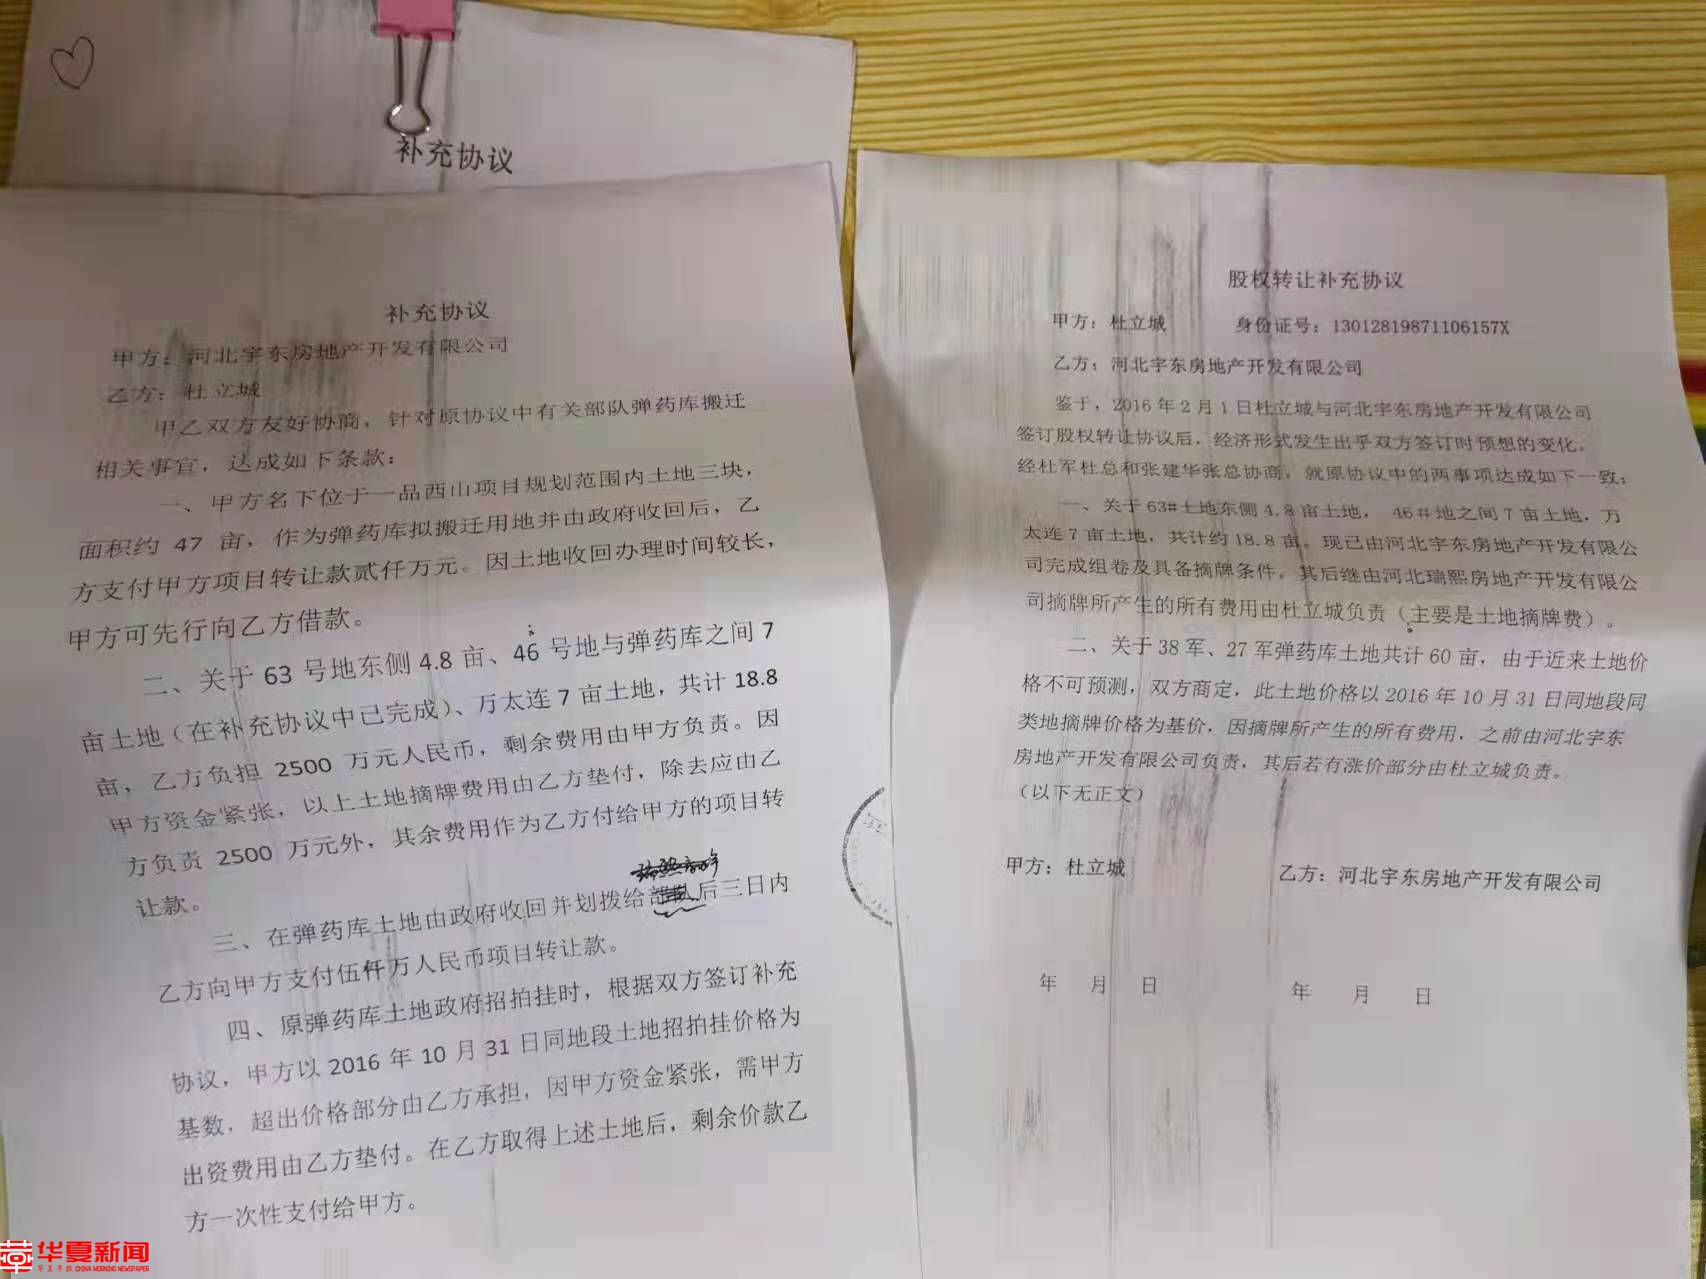 补充协议
补充协议
甲方：河北宇东房地产开发有限公司
乙方：杜立城
甲乙双方友好协商，针对原协议中有关部队弹药库搬迁
相关事宜，达成如下条款：
一、甲方名下位于一品西山项目规划范围内土地三块，
面积约 47 亩，作为弹药库拟搬迁用地并由政府收回后，乙
方支付甲方项目转让款贰仟万元。因土地收回办理时间较长，
甲方可先行向乙方借款。
二、关于 63 号地东侧 4.8 亩、46 号地与弹药库之间 7
亩土地（在补充协议中已完成）、万太连 7 亩土地，共计 18.8
亩，乙方负担 2500 万元人民币，剩余费用由甲方负责。因
甲方资金紧张，以上土地摘牌费用由乙方垫付，除去应由乙
方负责 2500 万元外，其余费用作为乙方付给甲方的项目转
让款。
三、在弹药库土地由政府收回并划拨给部队后三日内
乙方向甲方支付伍仟万人民币项目转让款。
四、原弹药库土地政府招拍挂时，根据双方签订补充
协议，甲方以 2016 年 10 月 31 日同地段土地招拍挂价格为
基数，超出价格部分由乙方承担，因甲方资金紧张，需甲方
出资费用由乙方垫付。在乙方取得上述土地后，剩余价款乙
方一次性支付给甲方。
股权转让补充协议
甲方：杜立城 身份证号：13012819871106157X
乙方：河北宇东房地产开发有限公司
鉴于，2016 年 2 月 1 日杜立城与河北宇东房地产开发有限公司
签订股权转让协议后，经济形式发生出乎双方签订时预想的变化。
经杜军杜总和张建华张总协商，就原协议中的两事项达成如下一致：
一、关于 63#土地东侧 4.8 亩土地， 46#地之间 7 亩土地，万
太连 7 亩土地，共计约 18.8 亩。现已由河北宇东房地产开发有限公
司完成组卷及具备摘牌条件，其后继由河北瑞熙房地产开发有限公
司摘牌所产生的所有费用由杜立城负责（主要是土地摘牌费）。
二、关于 38 军、27 军弹药库土地共计 60 亩，由于近来土地价
格不可预测，双方商定，此土地价格以 2016 年 10 月 31 日同地段同
类地摘牌价格为基价，因摘牌所产生的所有费用，之前由河北宇东
房地产开发有限公司负责，其后若有涨价部分由杜立城负责。
（以下无正文）
甲方：杜立城 乙方：河北宇东房地产开发有限公司
年 月 日 年 月 日
华夏新闻
华夏早报 CHINA MORNING NEWSPAPER